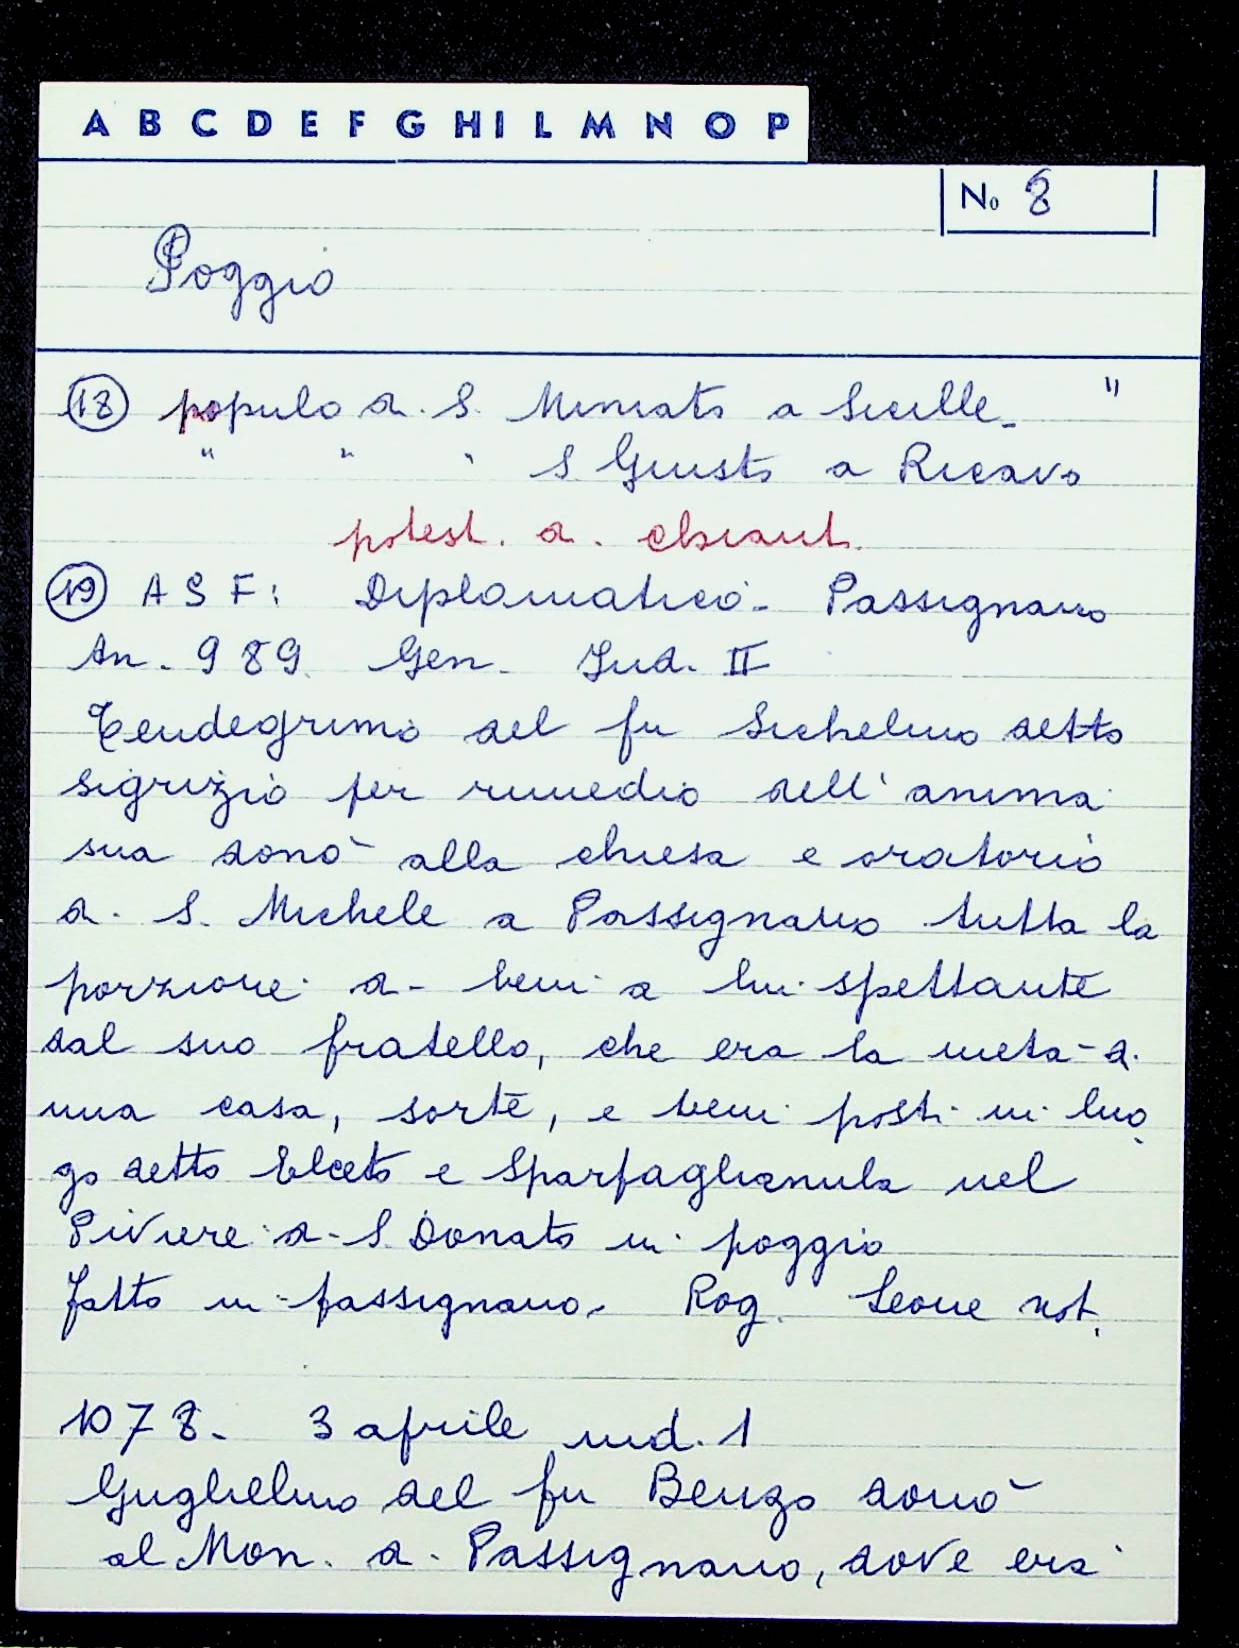 A B C D E F G H I L M N O P
No 8
Poggio
18 popolo di S. Miniato a Sicille - "
" " " S Giusto a Ricavo
potest. di chiant.
19 A S F: Diplomatico - Passignano
An. 989 Gen. Ind. II
Teudegrimo del fu Sichelmo detto
sigrizio per rimedio dell' anima
sua donò alla chiesa e oratorio
di S. Michele a Passignano tutta la
porzione di beni a lui spettante
dal suo fratello, che era la metà di
una casa, sorte, e beni posti in luo
go detto Elceto e Sparfaglianula nel
Piviere di S. Donato in poggio
fatto in passignano. Rog. Leone not.
1078. 3 aprile ind. 1
Guglielmo del fu Benzo donò
al Mon. di Passignano, dove era